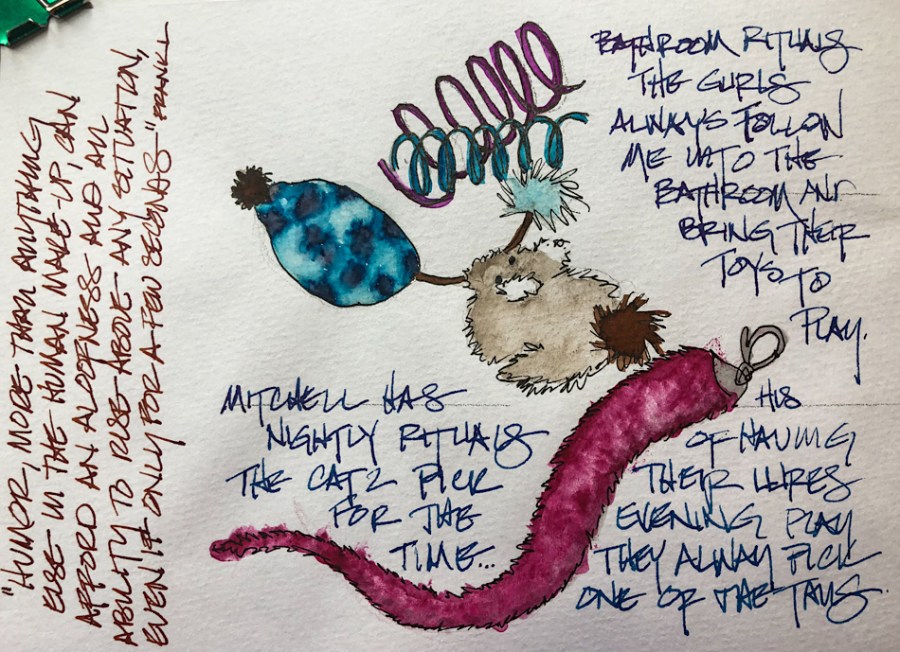 "HUMOR, MORE THAN ANYTHING
ELSE IN THE HUMAN MAKE-UP, CAN
AFFORD AN ALOOFNESS AND AN
ABILITY TO RISE ABOVE ANY SITUATION,
EVEN IF ONLY FOR A FEW SECONDS" FRANKL
BATHROOM RITUALS
THE GURLS
ALWAYS FOLLOW
ME INTO THE
BATHROOM AND
BRING THEIR
TOYS TO
PLAY.
MITCHELL HAS
NIGHTLY RITUALS
THE CATS PICK
FOR THE
TIME...
HIS
OF HAVING
THEIR LURES
EVENING PLAY
THEY ALWAY PICK
ONE OF THE TAILS